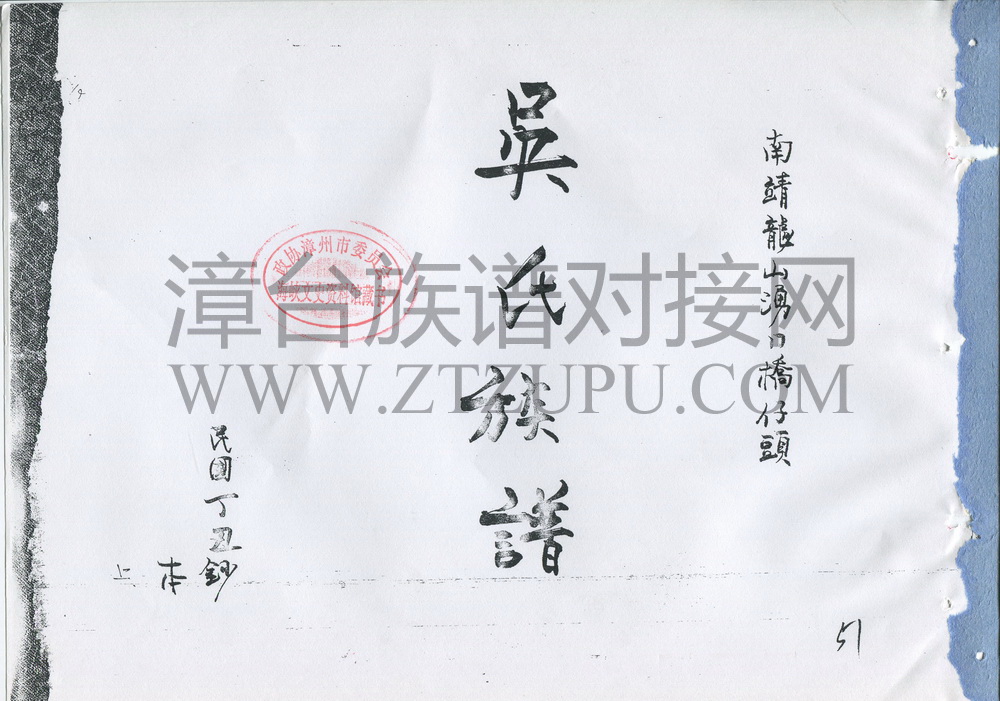 南靖龍山湧口橋仔頭
吳氏族譜
民國丁丑鈔
本
上
51
政协漳州市委员会
海峡文史资料馆藏书
漳台族谱对接网
WWW.ZTZUPU.COM